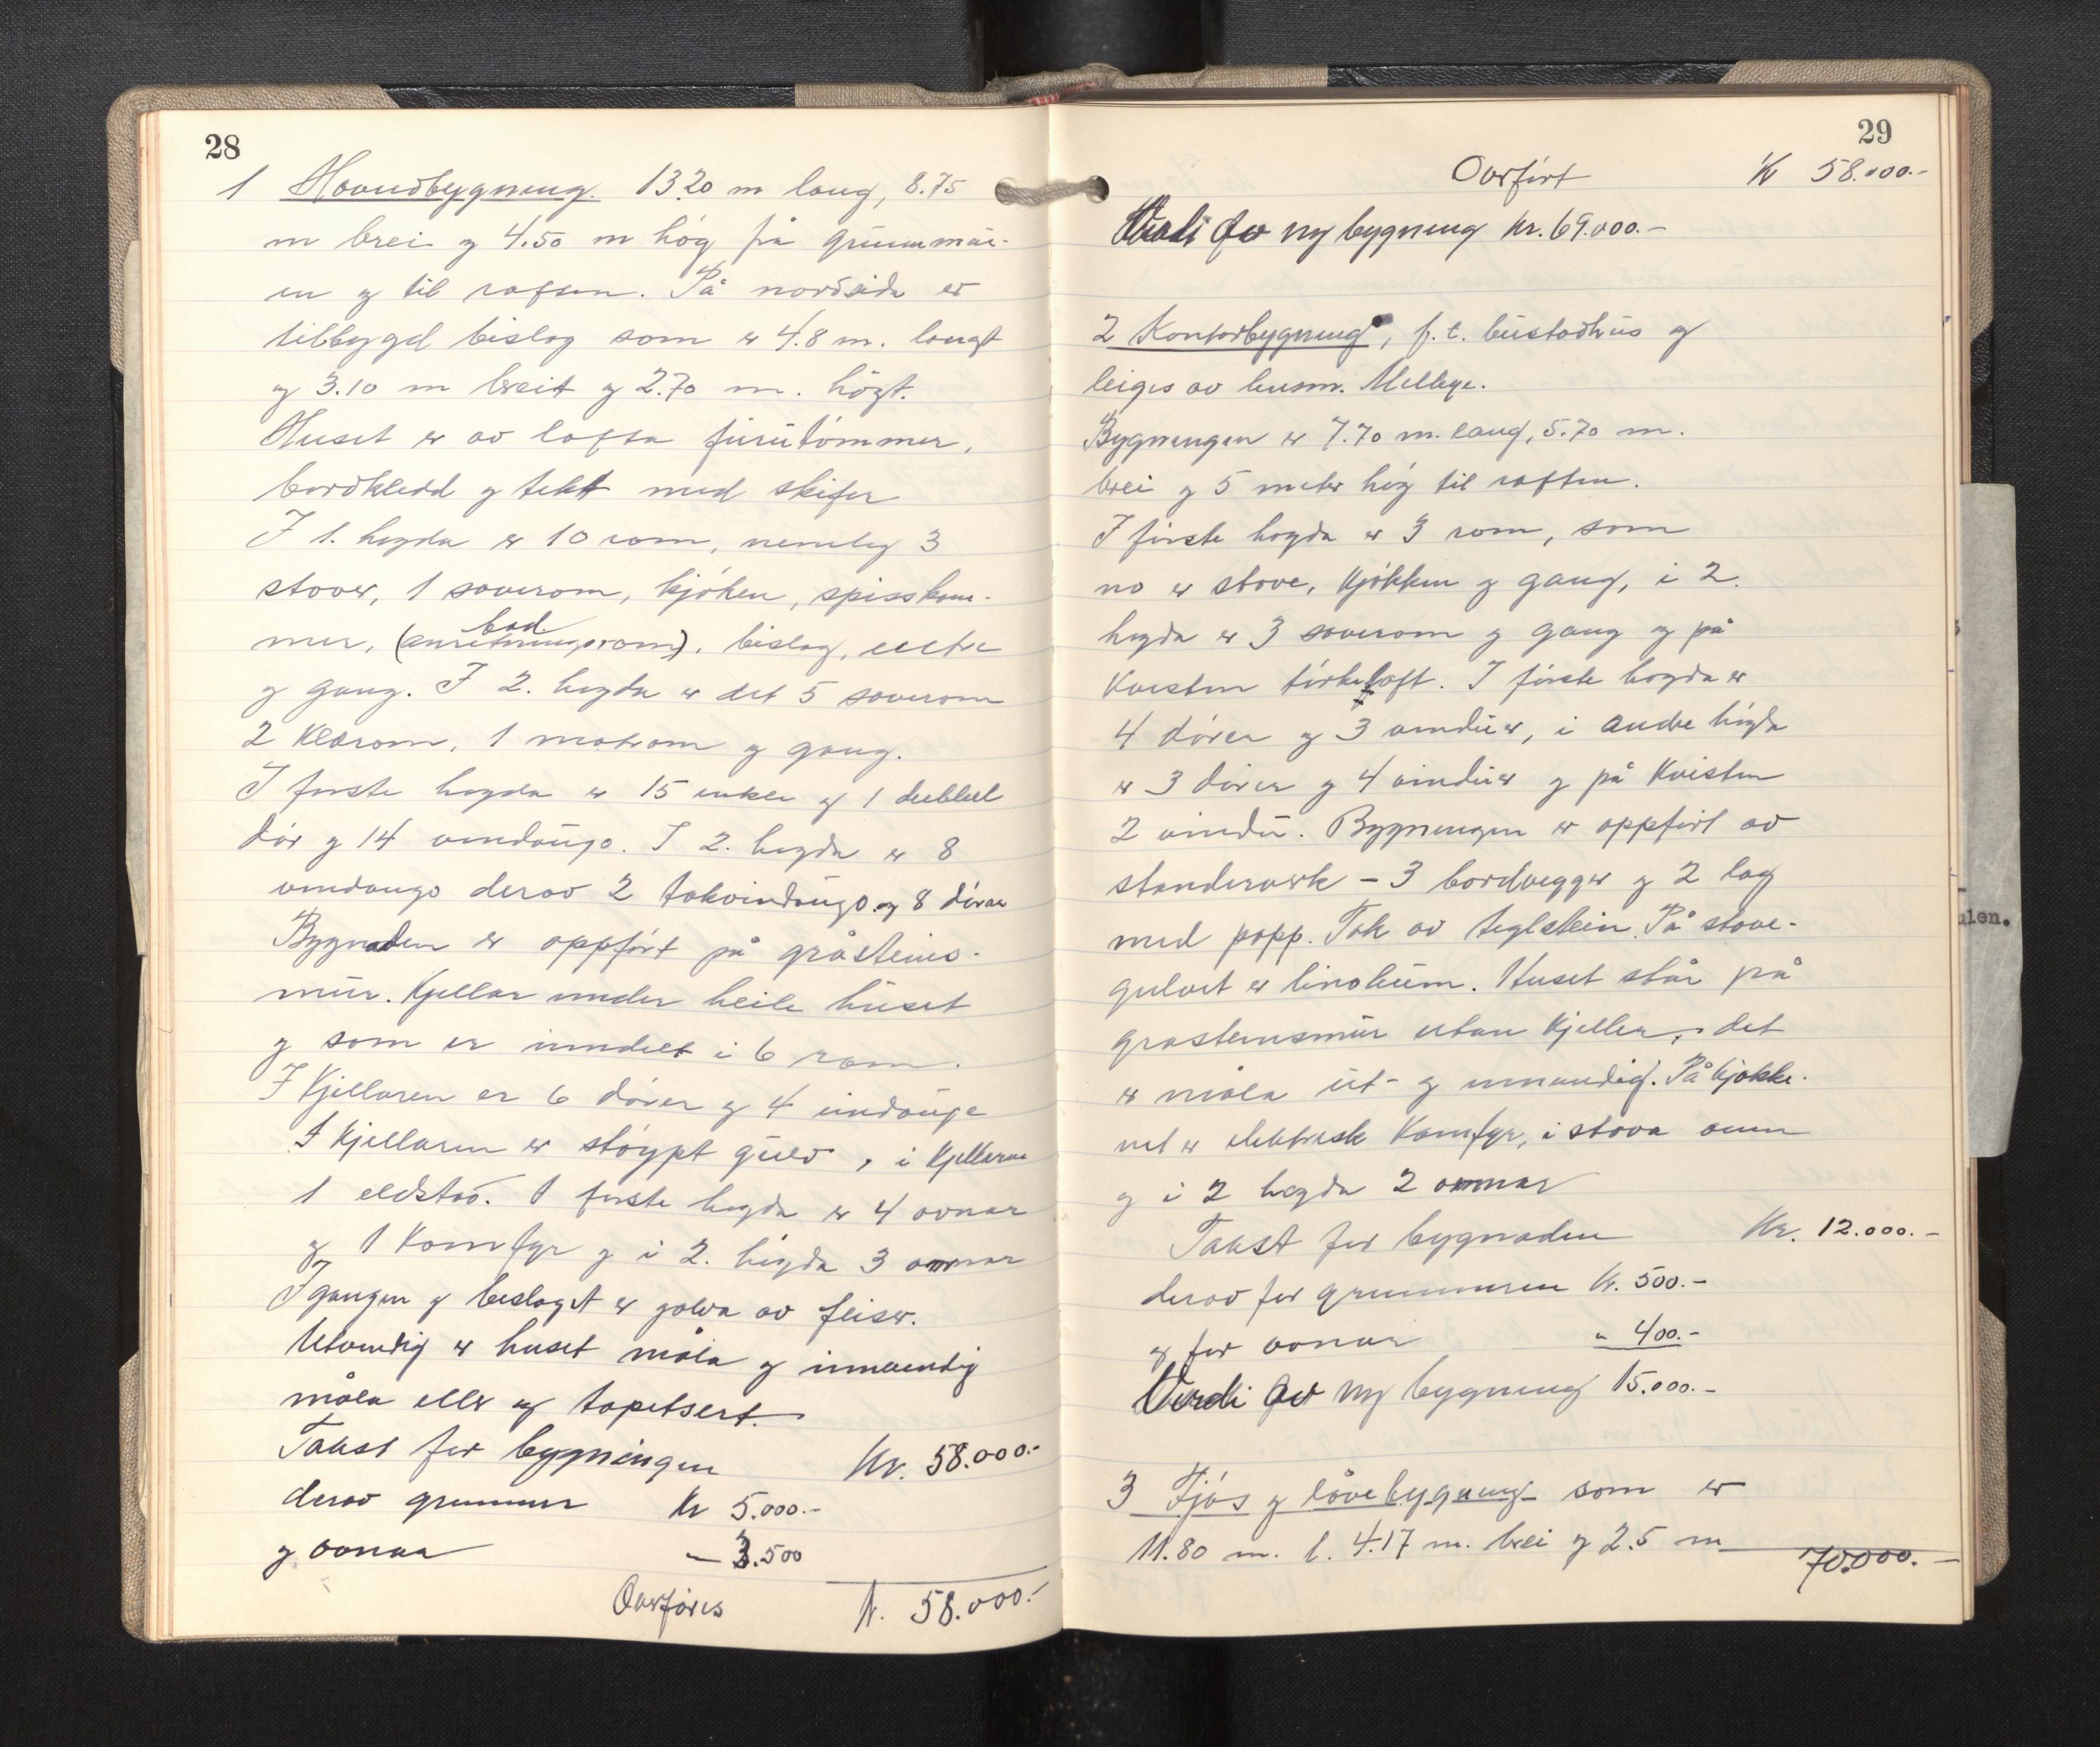 28
1 Hovudbygning. 13.20 m lang, 8.75
m brei og 4.50 m høg frå grunnmur-
en og til raften. På nordsida er
tilbygd bislag som er 4.8 m. langt
og 3.10 m breit og 2.70 m. høgt.
Huset er av lafta furutømmer,
bordkledd og tekt med skifer
I 1. høgda er 10 rom, nemleg 3
stover, 1 soverom, kjøken, spisskam-
bad.
mer, (anretningsrom), bislag, entre
og gang. I 2. høgda er det 5 soverom
2 klærom, 1 matrom og gang.
I første høgda er 15 enkle og 1 dubbel
dør og 14 vindaugo. I 2. høgda er 8
vindaugo derav 2 takvindaugo og 8 dører
Bygnaden er oppført på gråsteins-
mur. Kjellar under heile huset
og som er inndelt i 6 rom.
I Kjellaren er 6 dører og 4 vindauge
I Kjellaren er støypt gulv, i Kjellaren
1 eldstad. I første høgda er 4 ovnar
og 1 Komfyr og i 2. høgda 3 ovnar
I gangen og beslaget er golva av fliser.
Utvendig er huset måla og innvendig
måla eller og tapetsert.
Takst for bygningen Kr. 58.000.-
derav grunnmur Kr 5.000.-
og ovnar — 3.500
Overføres Kr. 58.000.-
29
Overført Kr 58.000.-
Verdi for ny bygning Kr. 69.000.-
2 Kontorbygning, f.t. bustadhus og
leiges av lensm. Mellbye.
Bygningen er 7.70 m. lang, 5.70 m.
brei og 5 meter høg til raften.
I første høgda er 3 rom, som
no er stove, Kjøkken og gang, i 2.
høgda er 3 soverom og gang og på
Kvisten tørkeloft. I første høgda er
4 dører og 3 vinduer, i andre høgda
er 3 dører og 4 vinduer og på Kvisten
2 vindu. Bygningen er oppført av
standerverk - 3 bordvegger og 2 lag
med papp. Tak av teglstein. På stove-
gulvet er linoleum. Huset står på
grasteinsmur utan Kjeller, det
er måla ut- og innvendig. På kjøkke-
net er elektrisk Komfyr, i stova omn
og i 2 høgda 2 omnar
Takst for bygnaden Kr. 12.000.-
derav for grunnmuren Kr. 500.-
og for ovnar " 400.-
Verdi for ny bygning 15.000.-
3 Fjøs og løvebygning som er
11.80 m. l. 4.17 m. brei og 2.5 m
70.000.-
ulen.